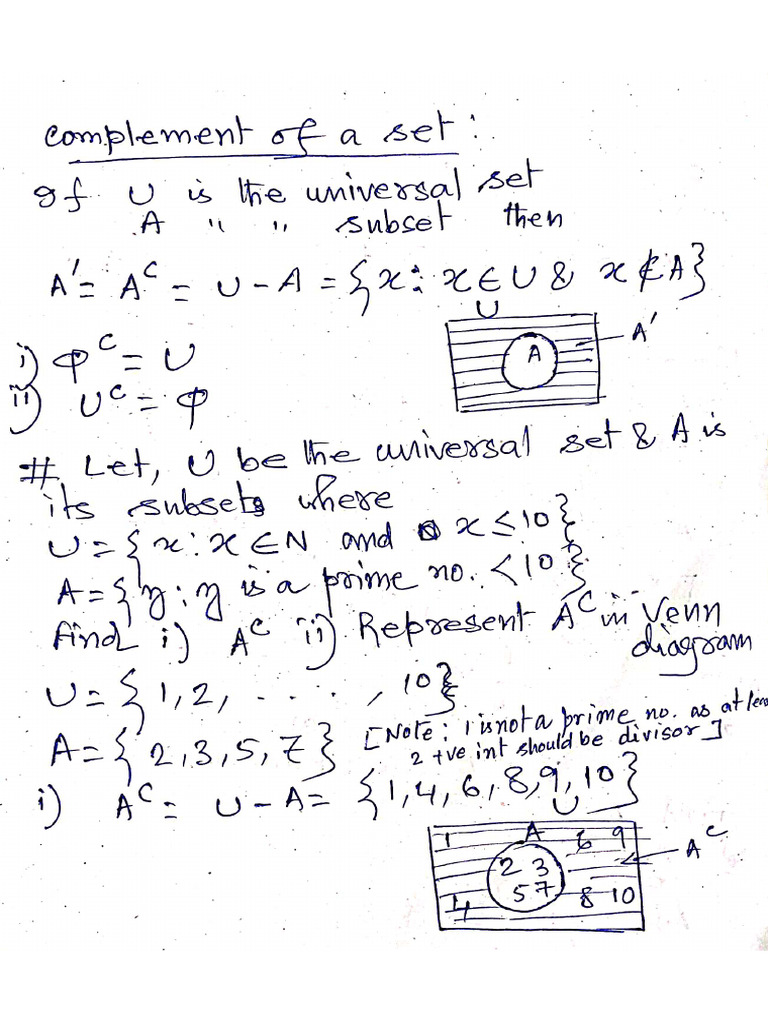 complement of a set:
If U is the universal set
A " " subset then
A' = Aᶜ = U - A = {x : x ∈ U & x ∉ A}
U
A'
A
i) φᶜ = U
ii) Uᶜ = φ
# Let, U be the universal set & A is
its subsets where
U = {x : x ∈ N and x ≤ 10}
A = {y : y is a prime no. < 10}
find i) Aᶜ ii) Represent Aᶜ in Venn
diagram
U = {1, 2, . . . . , 10}
A = {2, 3, 5, 7} [Note: 1 is not a prime no. as at leas
2 +ve int should be divisor]
i) Aᶜ = U - A = {1, 4, 6, 8, 9, 10}
U
1 A 6 9
Aᶜ
2 3
5 7
4 8 10